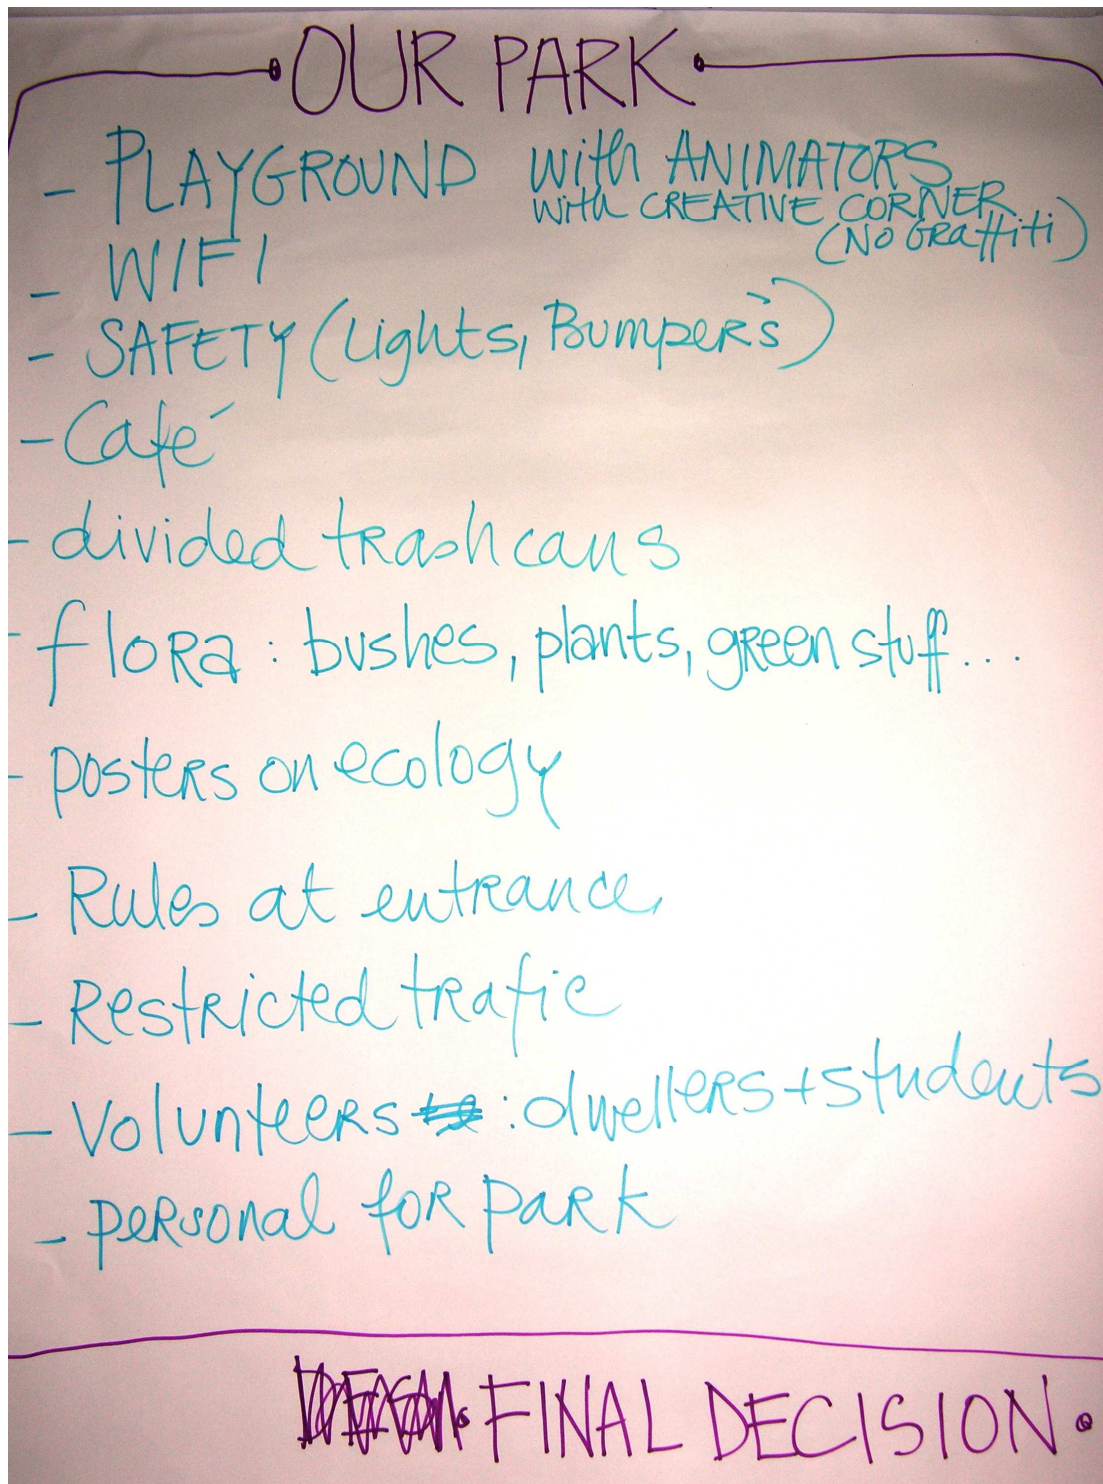 OUR PARK
- PLAYGROUND with ANIMATORS
with CREATIVE CORNER
(NO GRaffiti)
- WIFI
- SAFETY (Lights, Bumpers)
- Café
- divided trashcans
- flora: bushes, plants, green stuff...
- posters on ecology
- Rules at entrance
- Restricted trafic
- Volunteers : dwellers + students
- personal for park
FINAL DECISION